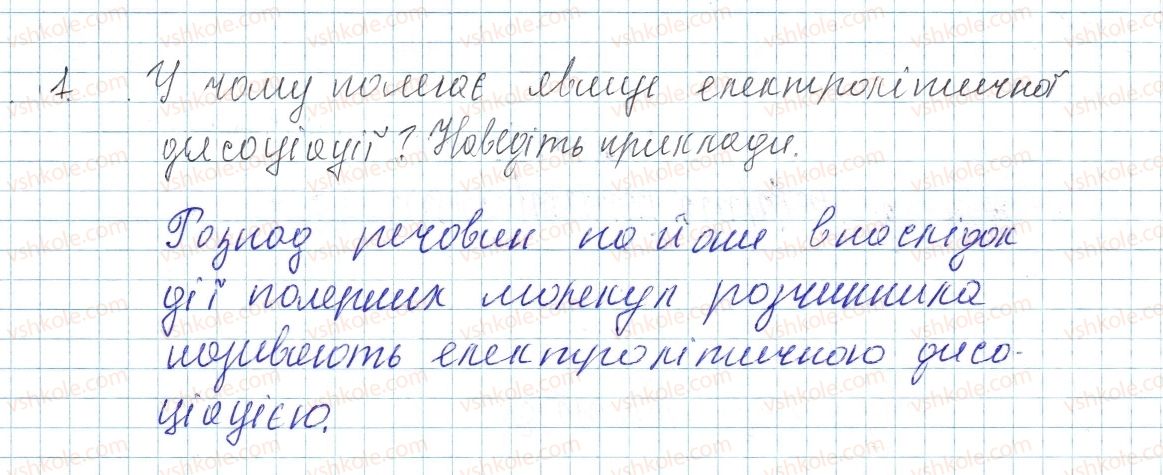 1. У чому полягає явище електролітичної
дисоціації? Наведіть приклади.
Розпад речовин на йони внаслідок
дії полярних молекул розчинника
називають електролітичною дисо-
ціацією.